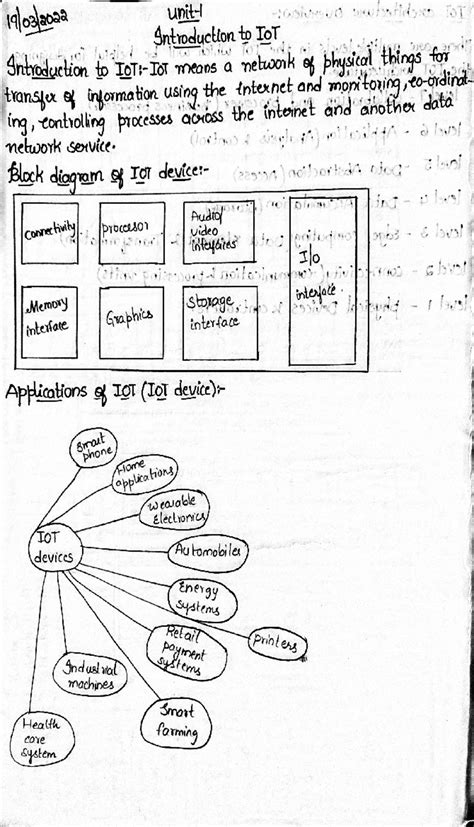 19/03/2022
Unit-1
Introduction to IoT
Introduction to IOT:- IoT means a network of physical things for
transfer of information using the Internet and monitoring, co-ordinat-
ing, controlling processes across the internet and another data
network service.
Block diagram of IoT device:-
Connectivity
processor
Audio/
video
interfaces
I/o
interface.
Memory
interface
Graphics
Storage
interface
Applications of IOT (IoT device):-
Smart
phone
Home
applications
Wearable
Electronics
IOT
devices
Automobiles
Energy
systems
Retail
payment
systems
printers
Industrial
machines
Smart
farming
Health
care
system